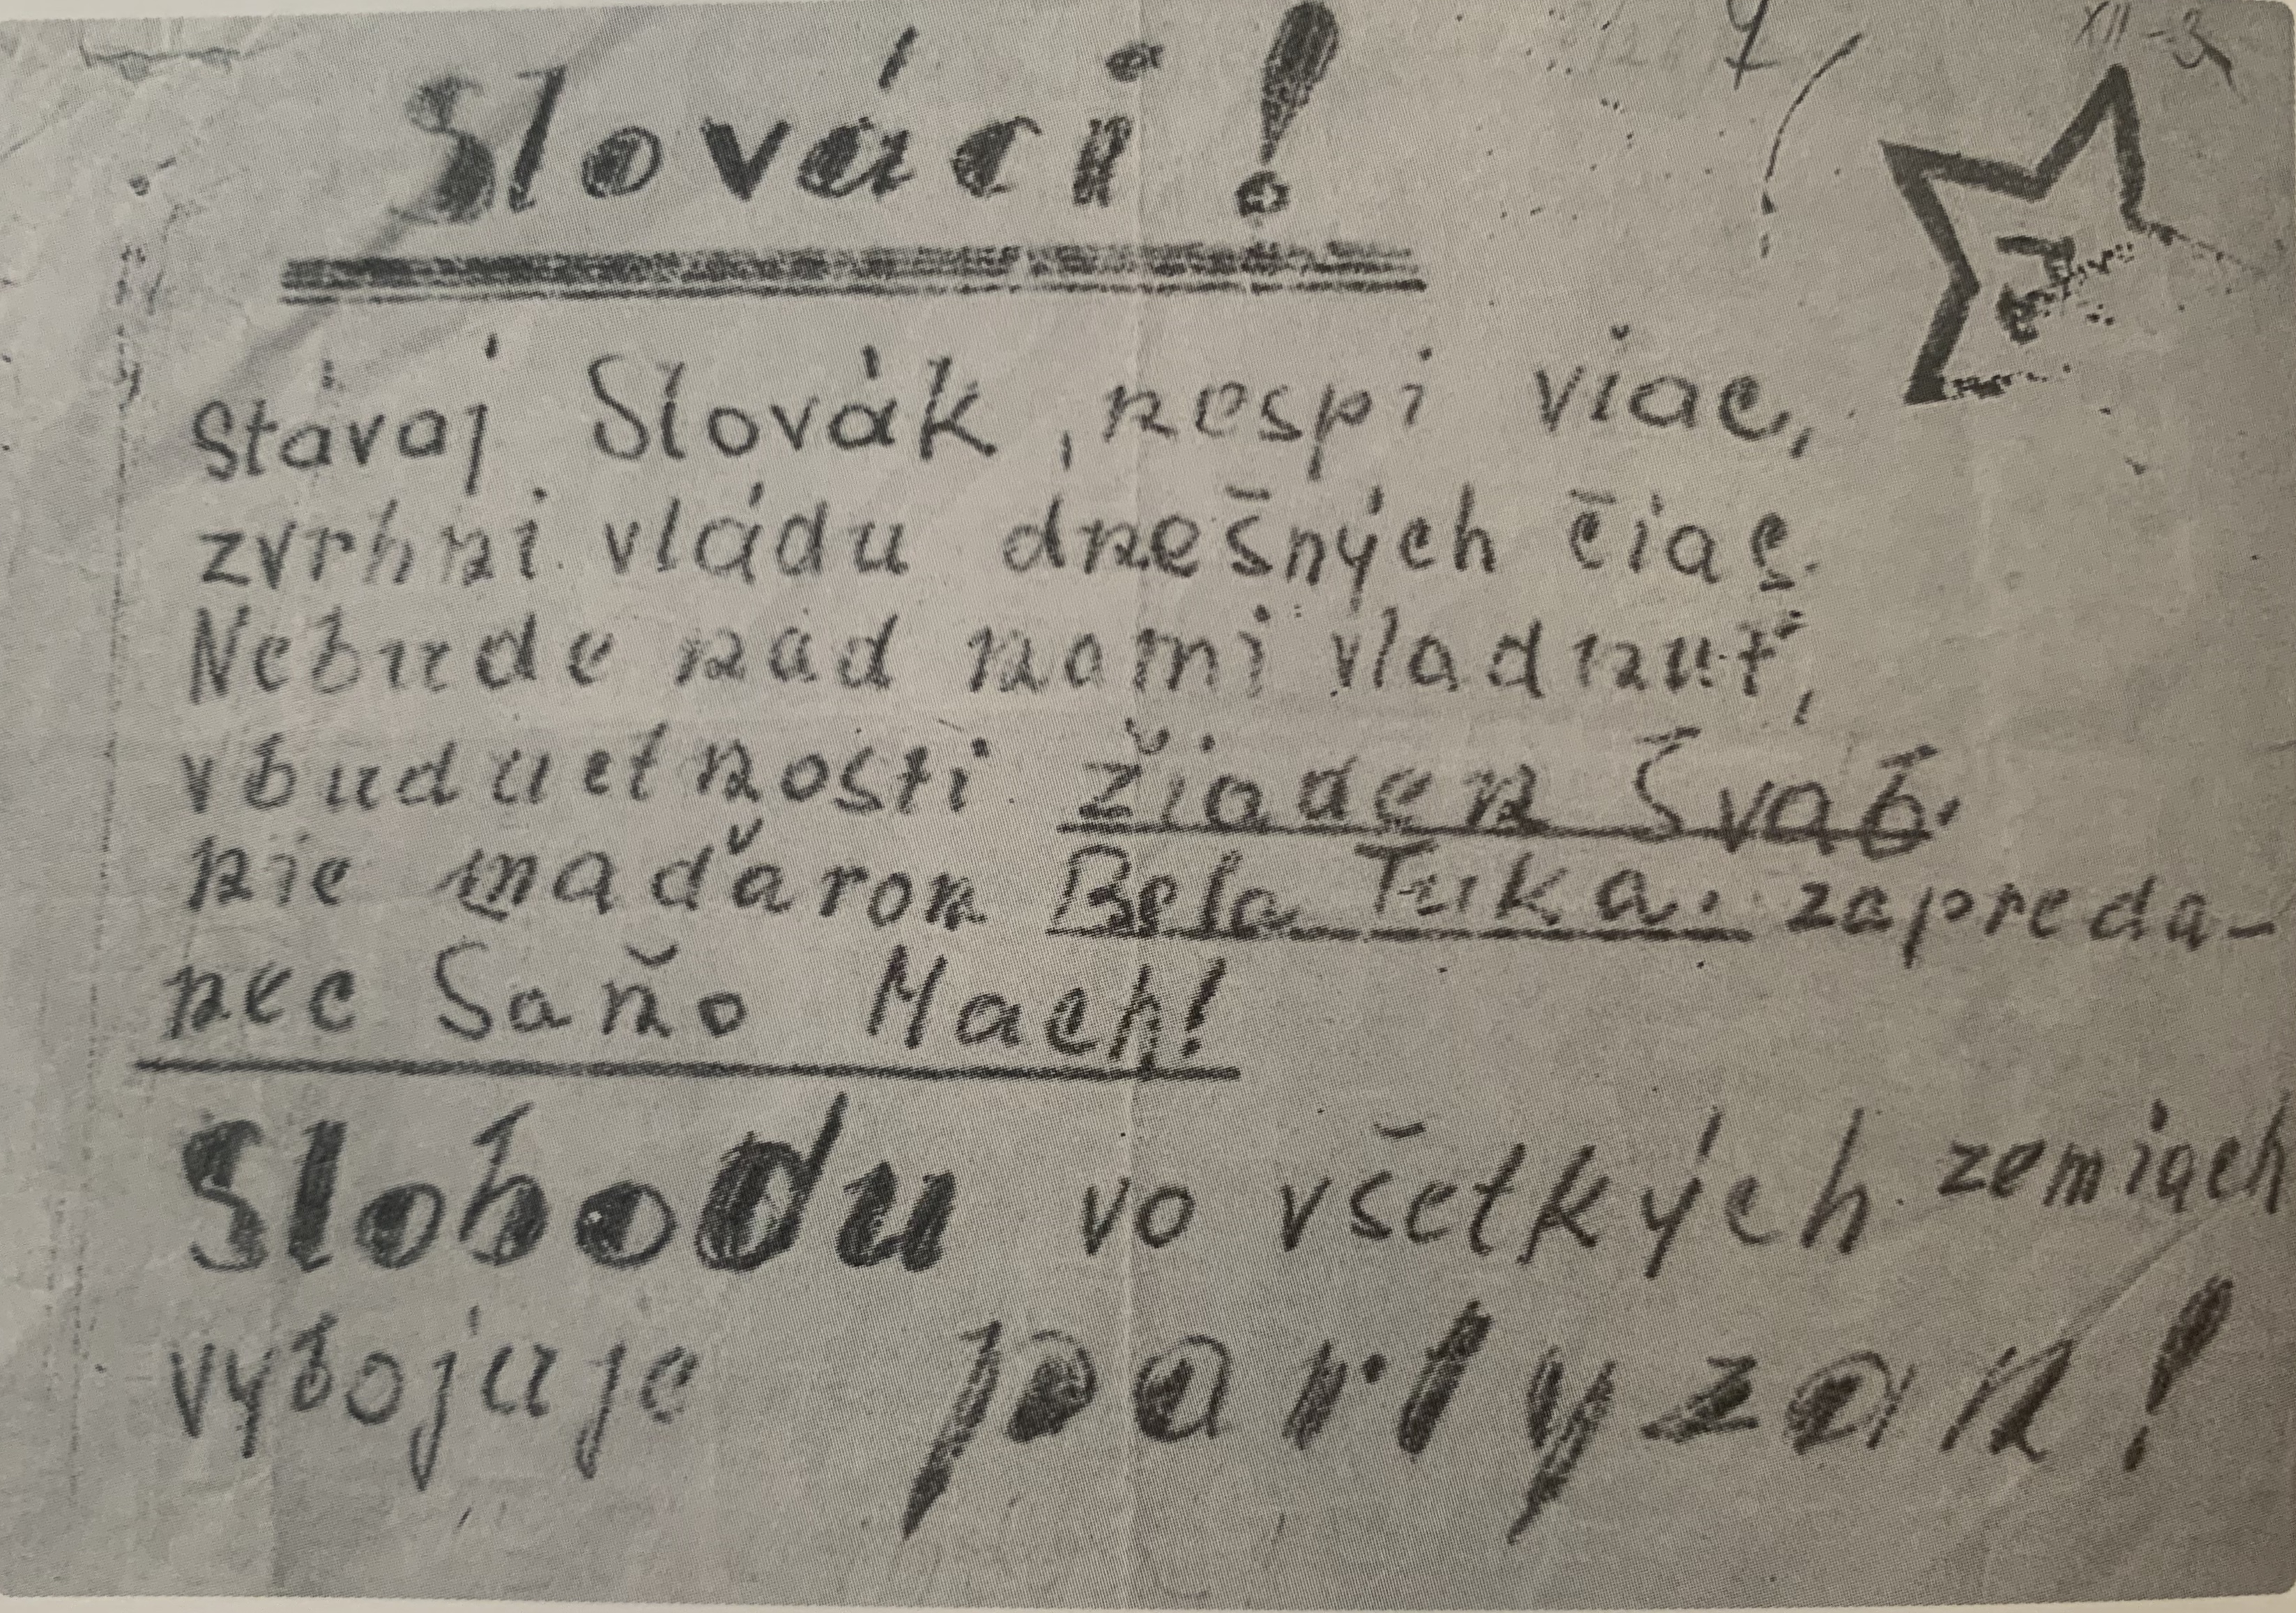 XII-3
Slováci!
Stávaj Slovák, nespi viac,
zvrhni vládu dnešných čias.
Nebude nad nami vladnuť,
v buductnosti žiaden Švab.
nie maďaron Bela Tuka. zapreda-
nec Saňo Mach!
Slobodu vo všetkých zemiach
vybojuje partyzan!